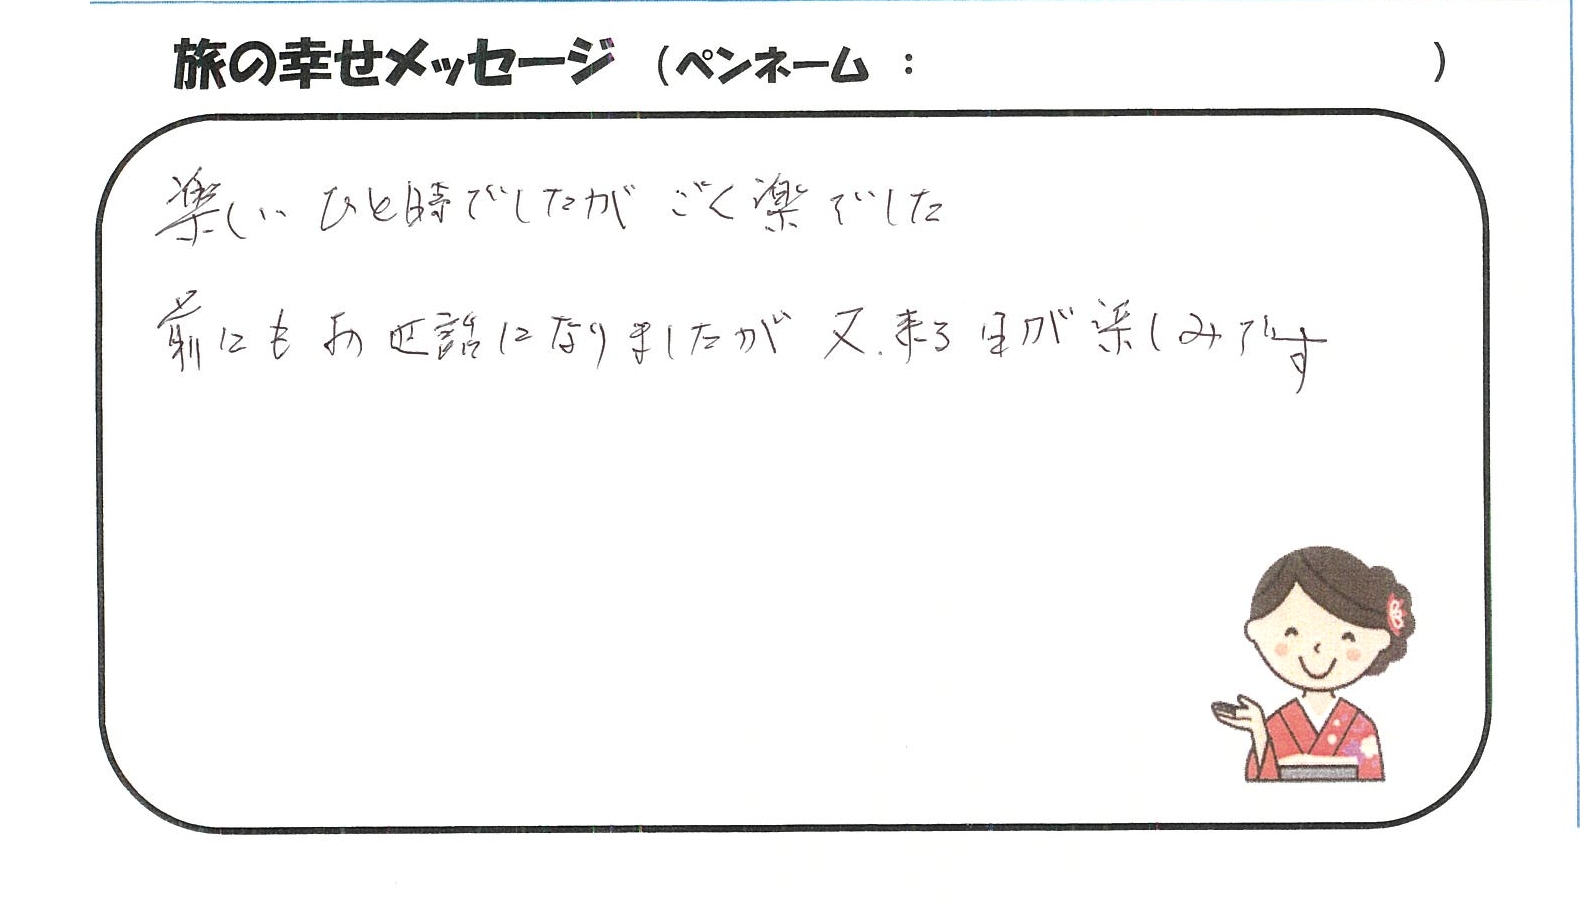 旅の幸せメッセージ （ペンネーム : ）
楽しい ひと時でしたが ごく楽でした
前にもお世話になりましたが 又、来る日が楽しみです